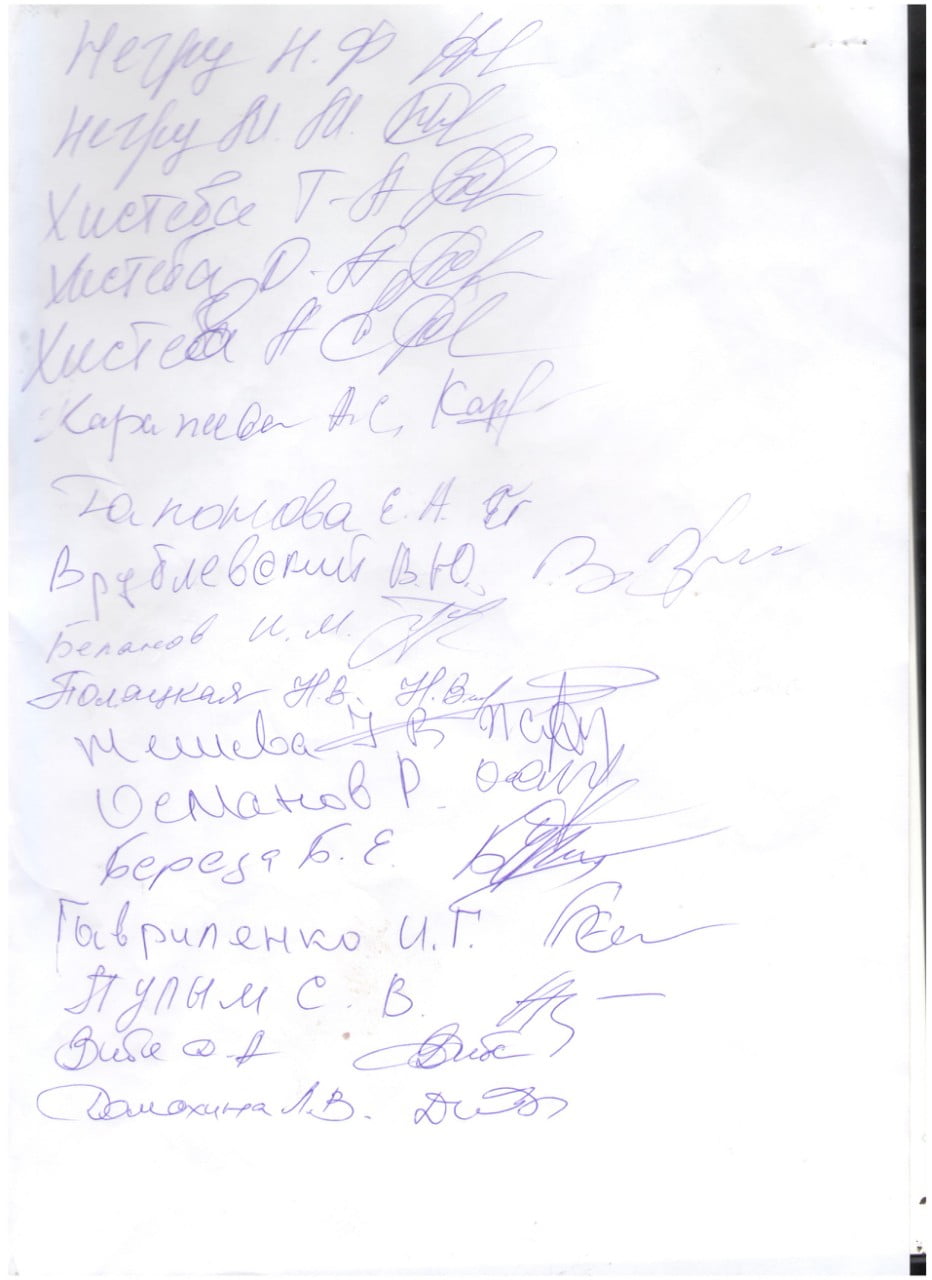 Негру Н. Ф
Негру М. М.
Хистева Т. А
Хистева О. А
Хистева А С
Кара А.С. Кар
Гапонова Е. А.
Врублевский В.Ю.
Беланов И. М.
Полацкая Н.В. Н.В.
Жешева У В
Османов Р.
Береза Б. Е.
Гавриленко И.Г.
Пулым С. В.
Вибе Ф. А Вибе
Домохина Л.В.